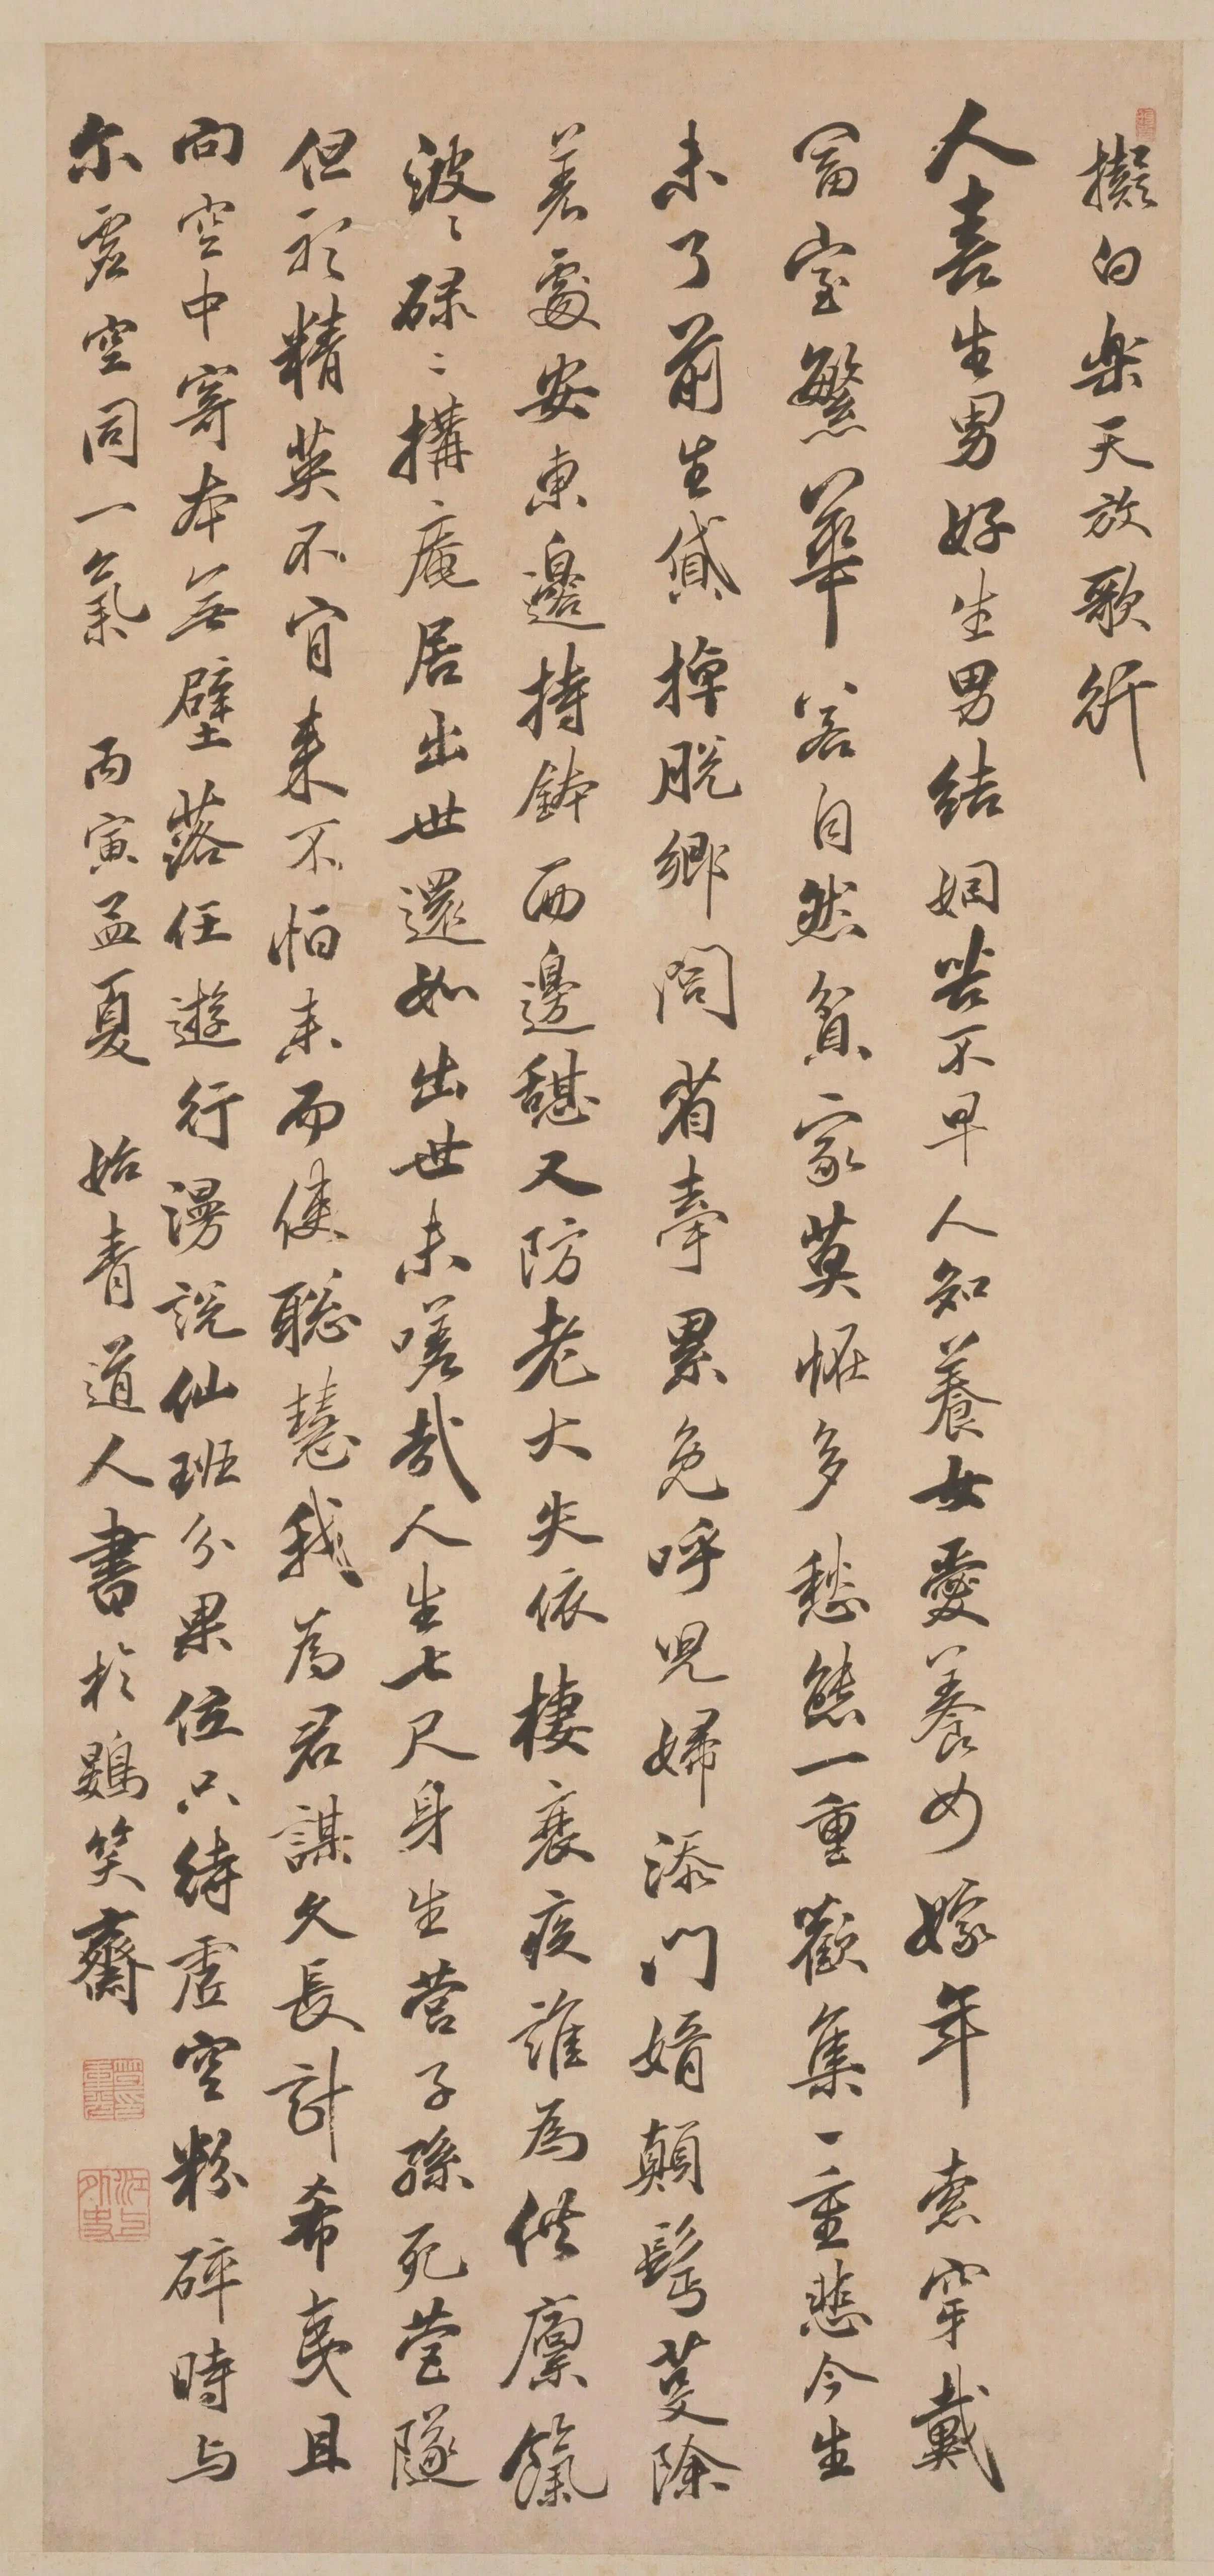 擬白樂天放歌行
人喜生男好生男結姻苦不早人知養女愛養女嫁年索穿戴
富室繁華若自然貧家莫恠多愁態一重歡集一重悲今生
未了前生貸掉脫鄉閭省牽累免呼児婦添門婿顛髡荽除
差處安東邊持鉢西邊憇又防老大失依棲衰疾誰為供廩餼
波〻碌〻搆庵居出世還如出世未嗟哉人生七尺身生營子孫死營隧
但祈精英不肓来不怕未而使聰慧我為君謀久長計希夷且
向空中寄本無壁落任遊行漫說仙班分果位只待虛空粉碎時与
尔虛空同一氣 丙寅孟夏 始青道人書於鷃笑齋
笪重光印
江上外史